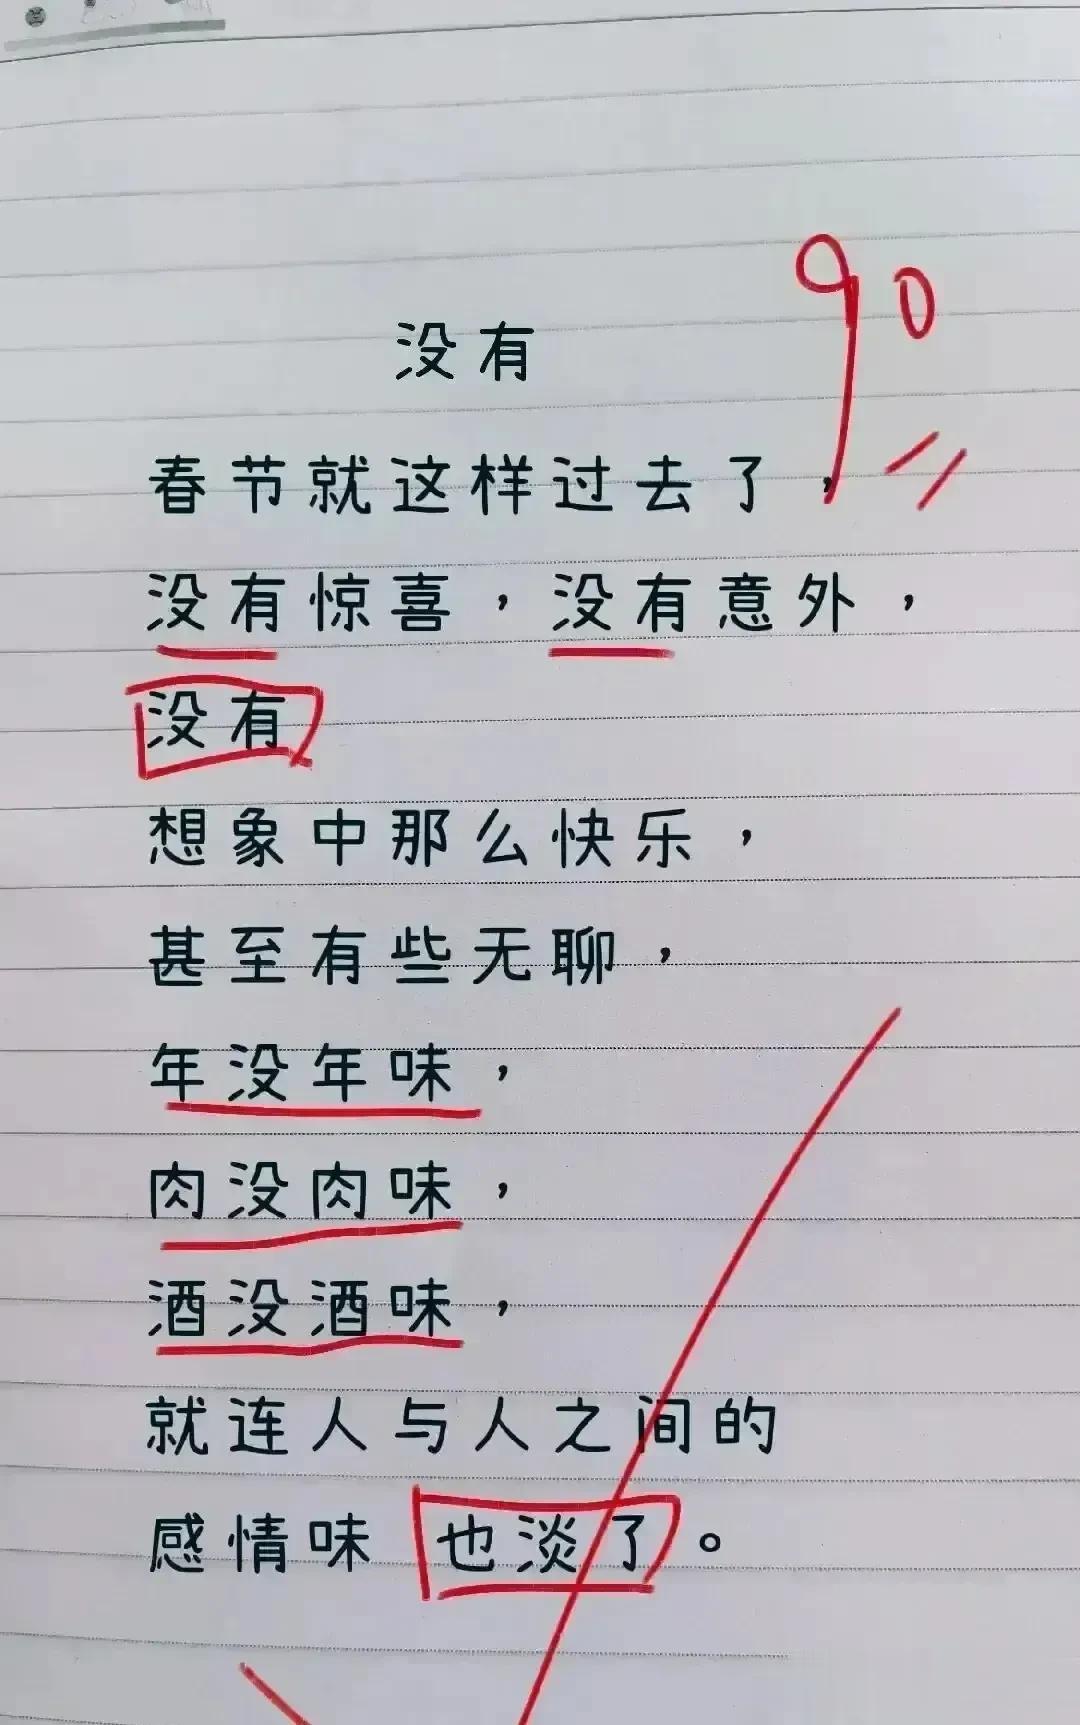 90
没有
春节就这样过去了，
没有惊喜，没有意外，
没有
想象中那么快乐，
甚至有些无聊，
年没年味，
肉没肉味，
酒没酒味，
就连人与人之间的
感情味也淡了。